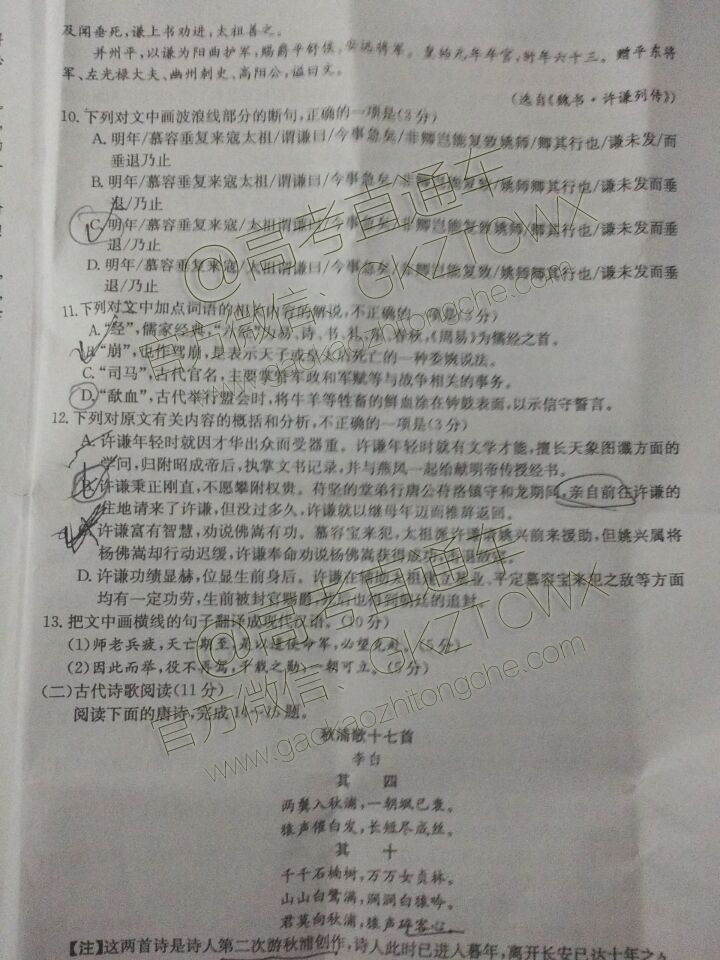 及闻垂死，谦上书劝进，太祖善之。
并州平，以谦为阳曲护军，赐爵平舒侯、安远将军。皇始元年卒官，时年六十三。赠平东将
军、左光禄大夫、幽州刺史、高阳公，谥曰文。
（选自《魏书·许谦列传》）
10.下列对文中画波浪线部分的断句，正确的一项是(3分)
A. 明年/慕容垂复来寇太祖/谓谦曰/今事急矣/非卿岂能复致姚师/卿其行也/谦未发/而
垂退乃止
B. 明年/慕容垂复来寇太祖/谓谦曰/今事急矣/非卿岂能复致/姚师卿其行也/谦未发而垂
退/乃止
C. 明年/慕容垂复来寇/太祖谓谦曰/今事急矣/非卿岂能复致姚师/卿其行也/谦未发而垂
退/乃止
D. 明年/慕容垂复来寇/太祖谓谦曰/今事急矣/非卿岂能复致/姚师卿其行也/谦未发而垂
退/乃止
11.下列对文中加点词语的相关内容的解说，不正确的一项是(3分)
A.“经”，儒家经典，“六经”为易、诗、书、礼、乐、春秋，《周易》为儒经之首。
B.“崩”，记作驾崩，是表示天子或皇太后死亡的一种委婉说法。
C.“司马”，古代官名，主要掌管军政和军赋等与战争相关的事务。
D.“歃血”，古代举行盟会时，将牛羊等牲畜的鲜血涂在钟鼓表面，以示信守誓言。
12.下列对原文有关内容的概括和分析，不正确的一项是(3分)
A. 许谦年轻时就因才华出众而受器重。许谦年轻时就有文学才能，擅长天象图谶方面的
学问，归附昭成帝后，执掌文书记录，并与燕凤一起给献明帝传授经书。
B. 许谦秉正刚直，不愿攀附权贵。苻坚的堂弟行唐公苻洛镇守和龙期间，亲自前往许谦的
住地请来了许谦，但没过多久，许谦就以继母年迈而推辞返回。
许谦富有智慧，劝说佛嵩有功。慕容宝来犯，太祖派许谦请姚兴前来援助，但姚兴属将
杨佛嵩却行动迟缓，许谦奉命劝说杨佛嵩获得成功，击退敌寇。
D. 许谦功绩显赫，位显生前身后。许谦在辅助太祖建立基业、平定慕容宝来犯之敌等方面
均有一定功劳，生前被封官赐爵，死后也得到朝廷的追封。
13. 把文中画横线的句子翻译成现代汉语。(10分)
(1)师老兵疲，天亡期至，是以遣使命军，必望克赴。(5分)
(2)因此而举，役不再驾，千载之勋，一朝可立。(5分)
(二)古代诗歌阅读(11分)
阅读下面的唐诗，完成14～15题。
秋浦歌十七首
李白
其 四
两鬓入秋浦，一朝飒已衰。
猿声催白发，长短尽成丝。
其 十
千千石楠树，万万女贞林。
山山白鹭满，涧涧白猿吟。
君莫向秋浦，猿声碎客心。
【注】这两首诗是诗人第二次游秋浦创作，诗人此时已进入暮年，离开长安已达十年之久
@高考直通车
官方微信：GKZTCWX
www.gaokaozhitongche.com
@高考直通车
官方微信：GKZTCWX
www.gaokaozhitongche.com